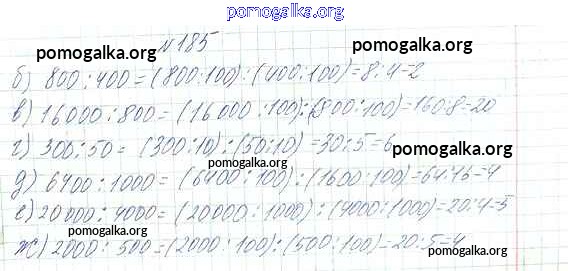 pomogalka.org
№185
pomogalka.org
pomogalka.org
б) 800:400=(800:100):(400:100)=8:4=2
в) 16000:800=(16000:100):(800:100)=160:8=20
г) 300:50=(300:10):(50:10)=30:5=6
pomogalka.org
pomogalka.org
д) 6400:1000=(6400:100):(1600:100)=64:16=4
е) 20000:4000=(20000:1000):(4000:1000)=20:4=5
pomogalka.org
pomogalka.org
ж) 2000:500=(2000:100):(500:100)=20:5=4